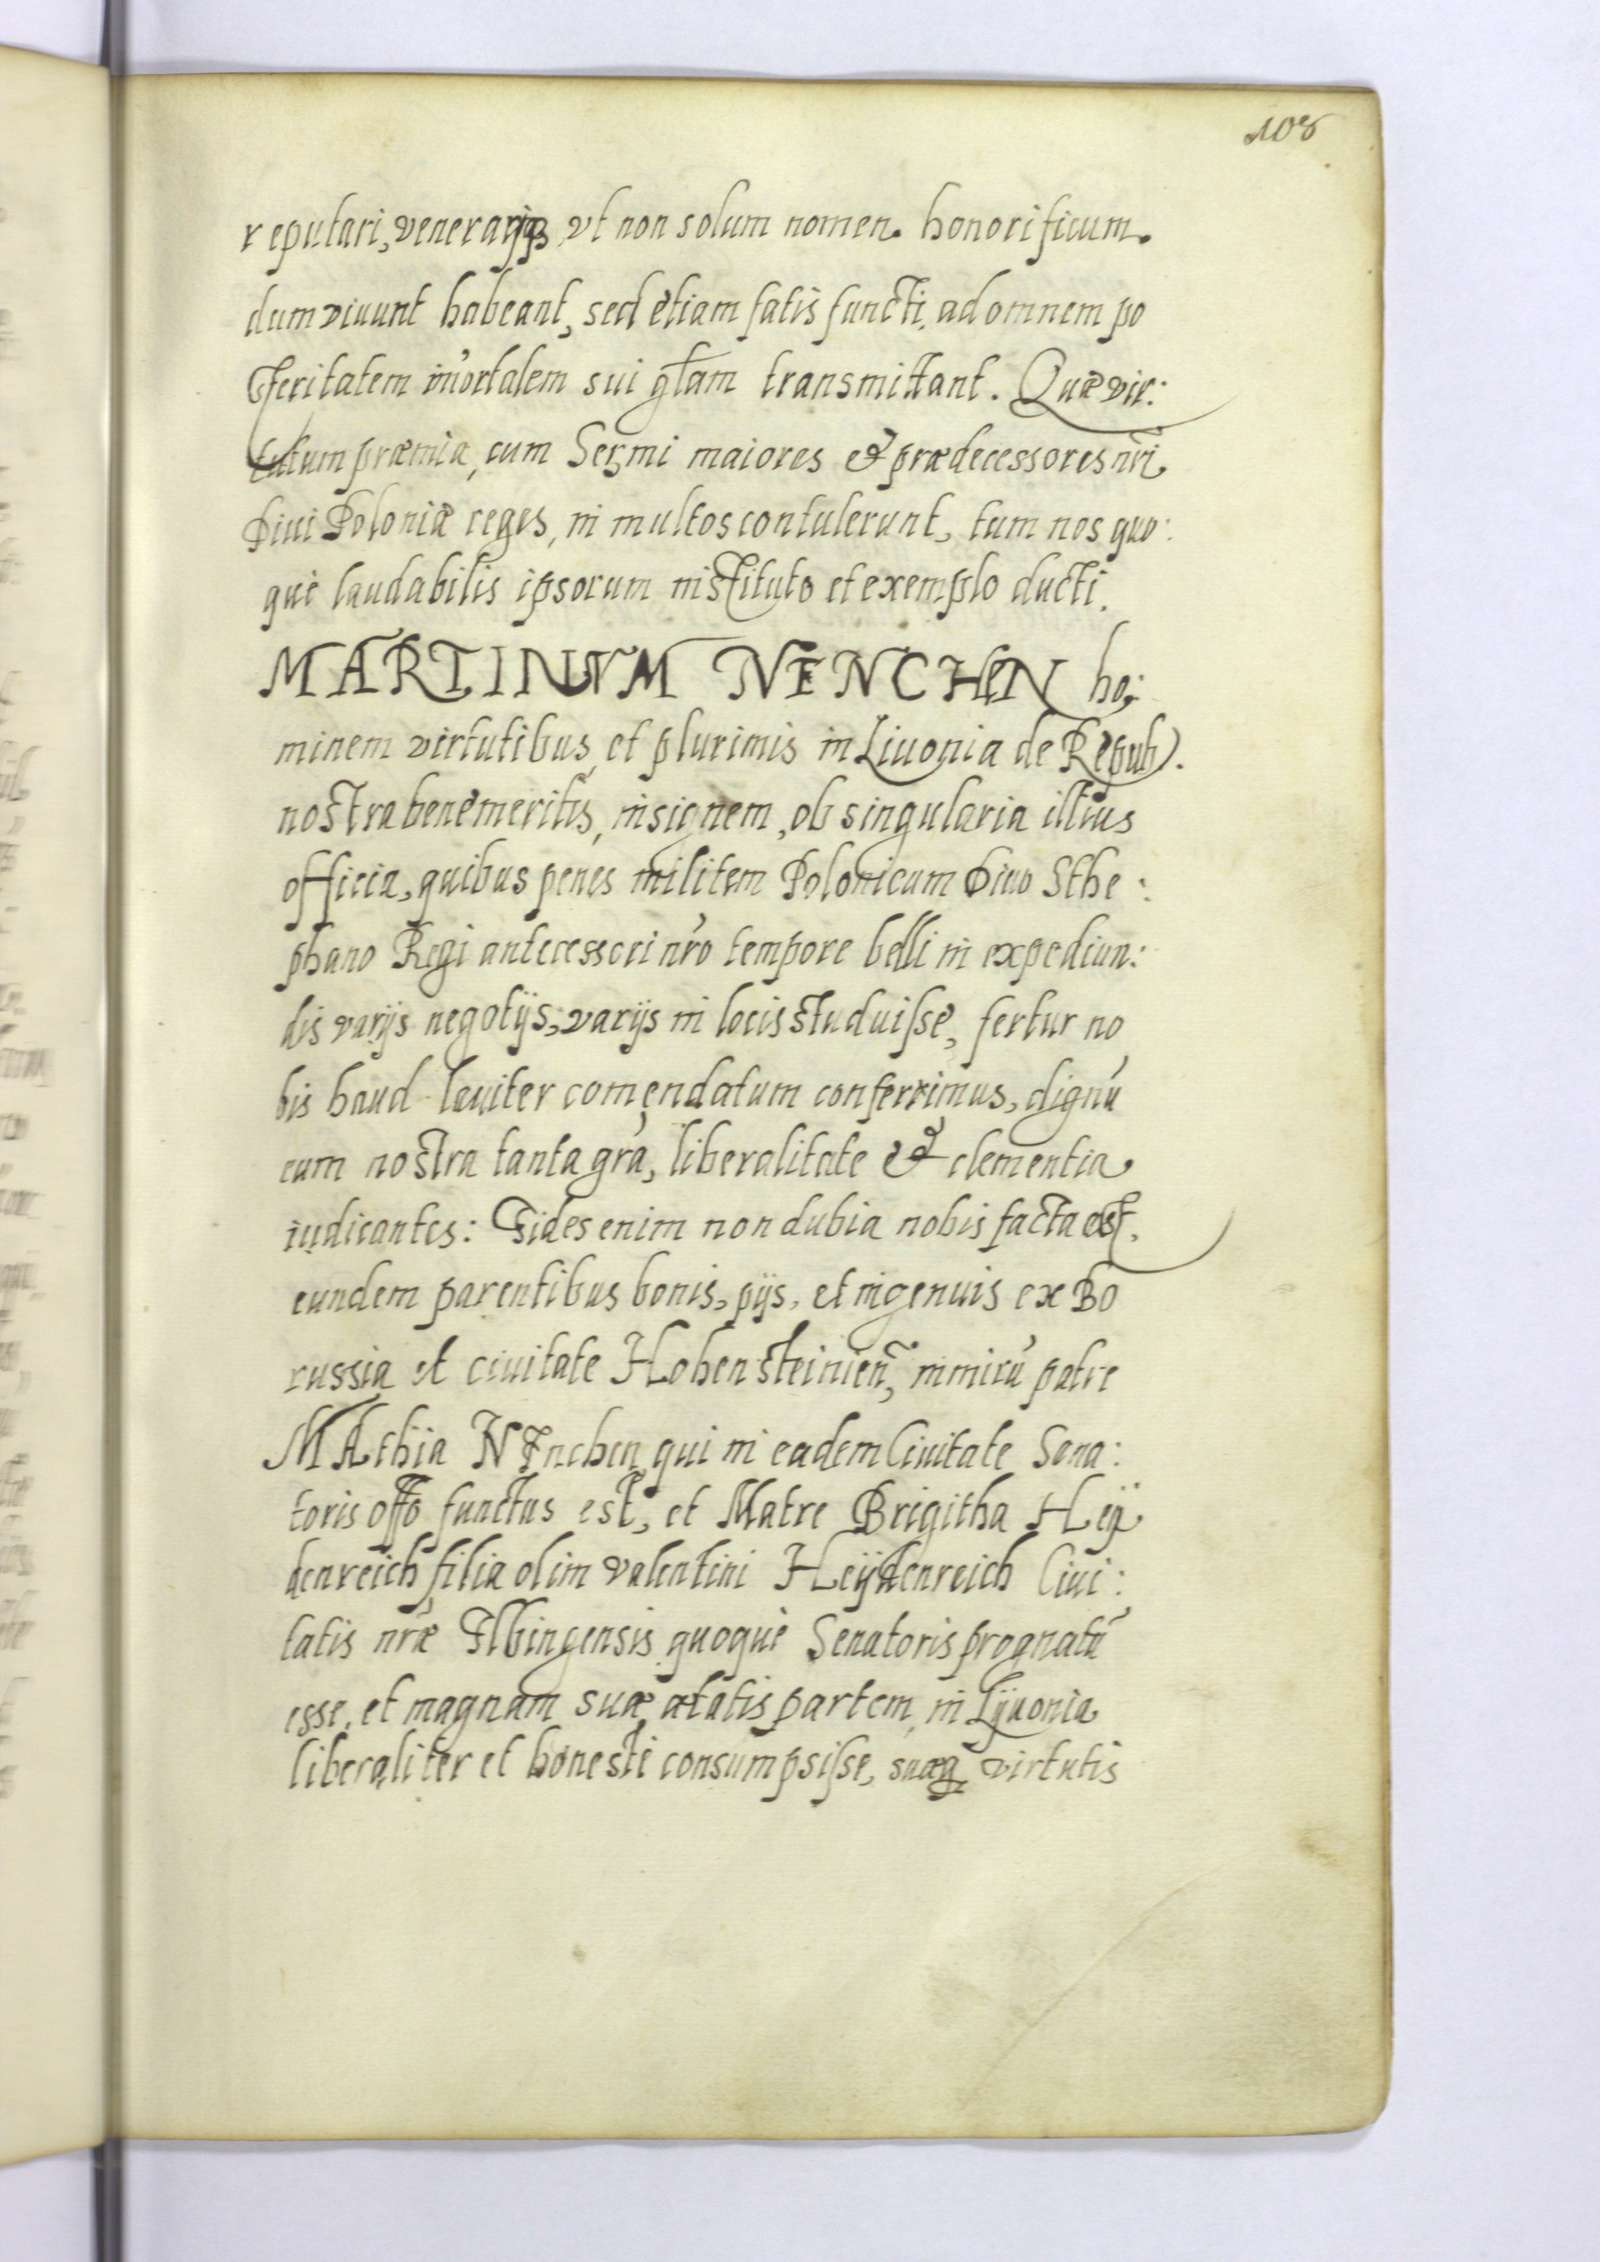 108
reputari, venerarijq3, vt non solum nomen honorificum
dum viuunt habeant, sed etiam fatis functi, ad omnem po
steritatem im̄ortalem sui gl̄am transmittant. Quæ vir:
tutum præmia, cum Sermi maiores & prædecessores nr̄i
Diui Poloniæ reges, in multos contulerunt, tum nos quo:
què laudabilis ipsorum instituto et exemplo ducti.
MARTINVM NENCHEN ho:
minem virtutibus, et plurimis in Liuonia de Repub.
nostra benemeritis, insignem, ob singularia illius
officia, quibus penes militem Polonicum Diuo Sthe:
phano Regi antecessori nr̄o tempore belli in expediun:
dis varijs negotijs, varijs in locis studuisse, fertur no
bis haud leuiter comendatum conferrimus, dignū
eum nostra tanta gra̅, liberalitate & clementia
iudicantes: Fides enim non dubia nobis facta est,
eundem parentibus bonis, pijs, et ingenuis ex Bo
russia et ciuitate Hohensteinień, nimirū patre
MAthia NEnchen qui in eadem Ciuitate Sena:
toris offo functus est, et Matre Brigitha Heÿ
denreich filia olim Valentini Heÿdenreich Ciui:
tatis nr̄æ Elbingensis quoquè Senatoris prognatū
esse, et magnam suæ ætatis partem in Lijuonia
liberaliter et honestè consumpsisse, suæq virtutis